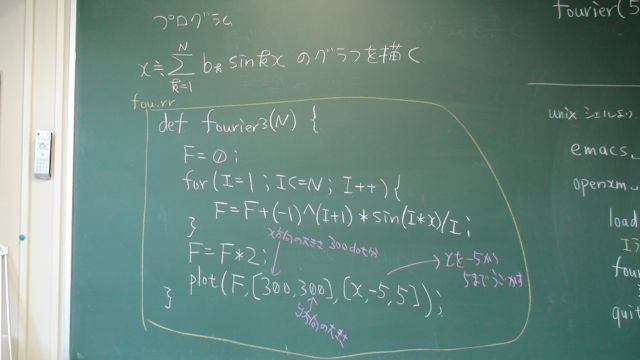 プログラム
x≒ N Σ k=1 bk sinkx のグラフを描く
fou.rr
def fourier3(N) {
F=0;
for(I=1; I<=N; I++){
F=F+(-1)^(I+1)*sin(I*x)/I;
}
F=F*2;
x方向の大きさ300dot分
plot(F,[300,300],[x,-5,5]);
}
y方向の大きさ
xを-5から
5まで
fourier(5
unix シェルより
emacs
openxm
load
fou
quit